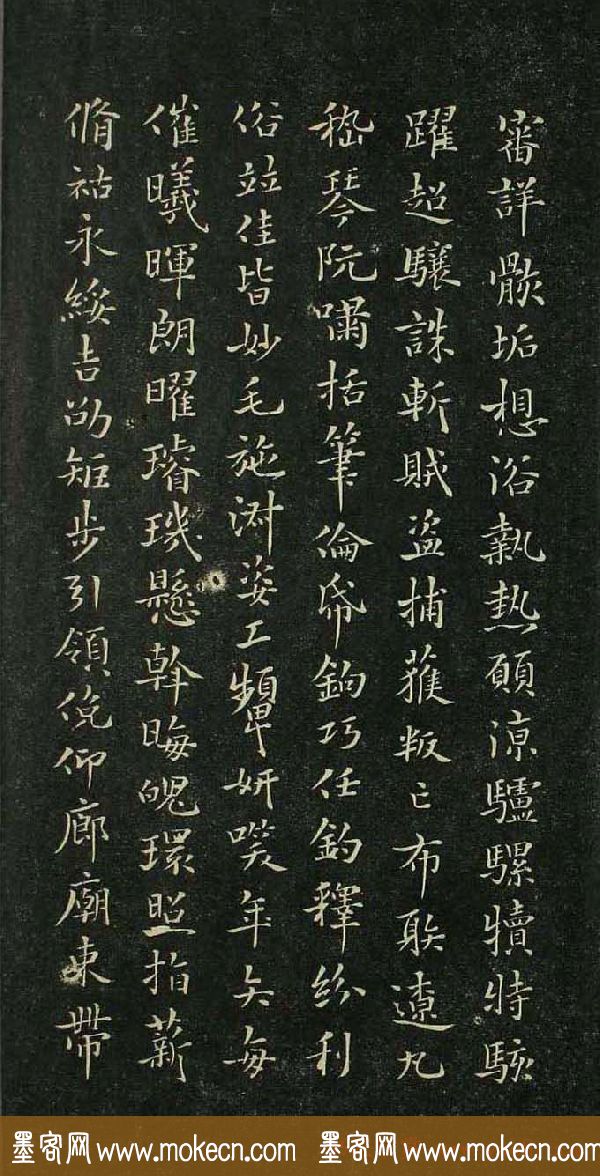 審詳骸垢想浴執熱願涼驢騾犢特駭
躍超驤誅斬賊盗捕獲叛亡布射遼丸
嵇琴阮嘯恬筆倫紙鈞巧任釣釋紛利
俗並佳皆妙毛施淑姿工顰妍笑年矢每
催曦暉朗曜璿璣懸斡晦魄環照指薪
脩祜永綏吉劭矩步引領俛仰廊廟束帶
墨客网 www.mokecn.com 墨客网 www.mokecn.com